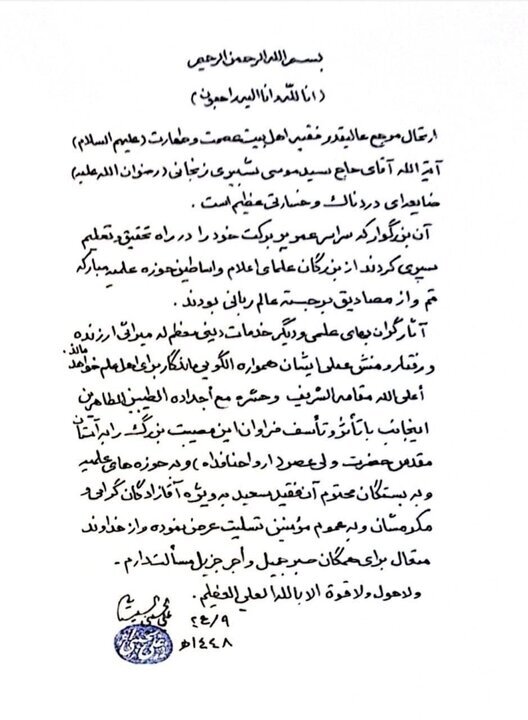 بسم الله الرحمن الرحیم
(انا لله وانا الیه راجعون)
ارتحال مرجع عالیقدر فقیه اهل بیت عصمت و طهارت (علیهم السلام)
آیة الله آقای حاج سید موسی شبیری زنجانی (رضوان الله علیه)
ضایعه‌ای دردناک و خسارتی عظیم است .
آن بزرگوار که سراسر عمر پر برکت خود را در راه تحقیق و تعلیم
سپری کردند از بزرگان علمای اعلام و اساطین حوزه علمیه مبارکه
قم و از مصادیق برجسته عالم ربانی بودند .
آثار گران بهای علمی و دیگر خدمات دینی معظم له میراثی ارزنده
و رفتار و منش عملی ایشان همواره الگویی ماندگار برای اهل علم خواهد ماند.
أعلى الله مقامه الشریف وحشره مع أجداده الطیبین الطاهرین
اینجانب با تأثر و تأسف فراوان این مصیبت بزرگ را به آستان
مقدس حضرت ولی عصر (ارواحنا فداه) و به حوزه های علمیه
و به بستگان محترم آن فقید سعید به ویژه آقازادگان گرامی و
مکرمشان و به عموم مؤمنین تسلیت عرض نموده و از خداوند
متعال برای همگان صبر جمیل و أجر جزیل مسألت دارم .
ولا حول ولا قوة الا بالله العلي العظیم .
علی الحسینی السیستانی
١٤٤٨هـ